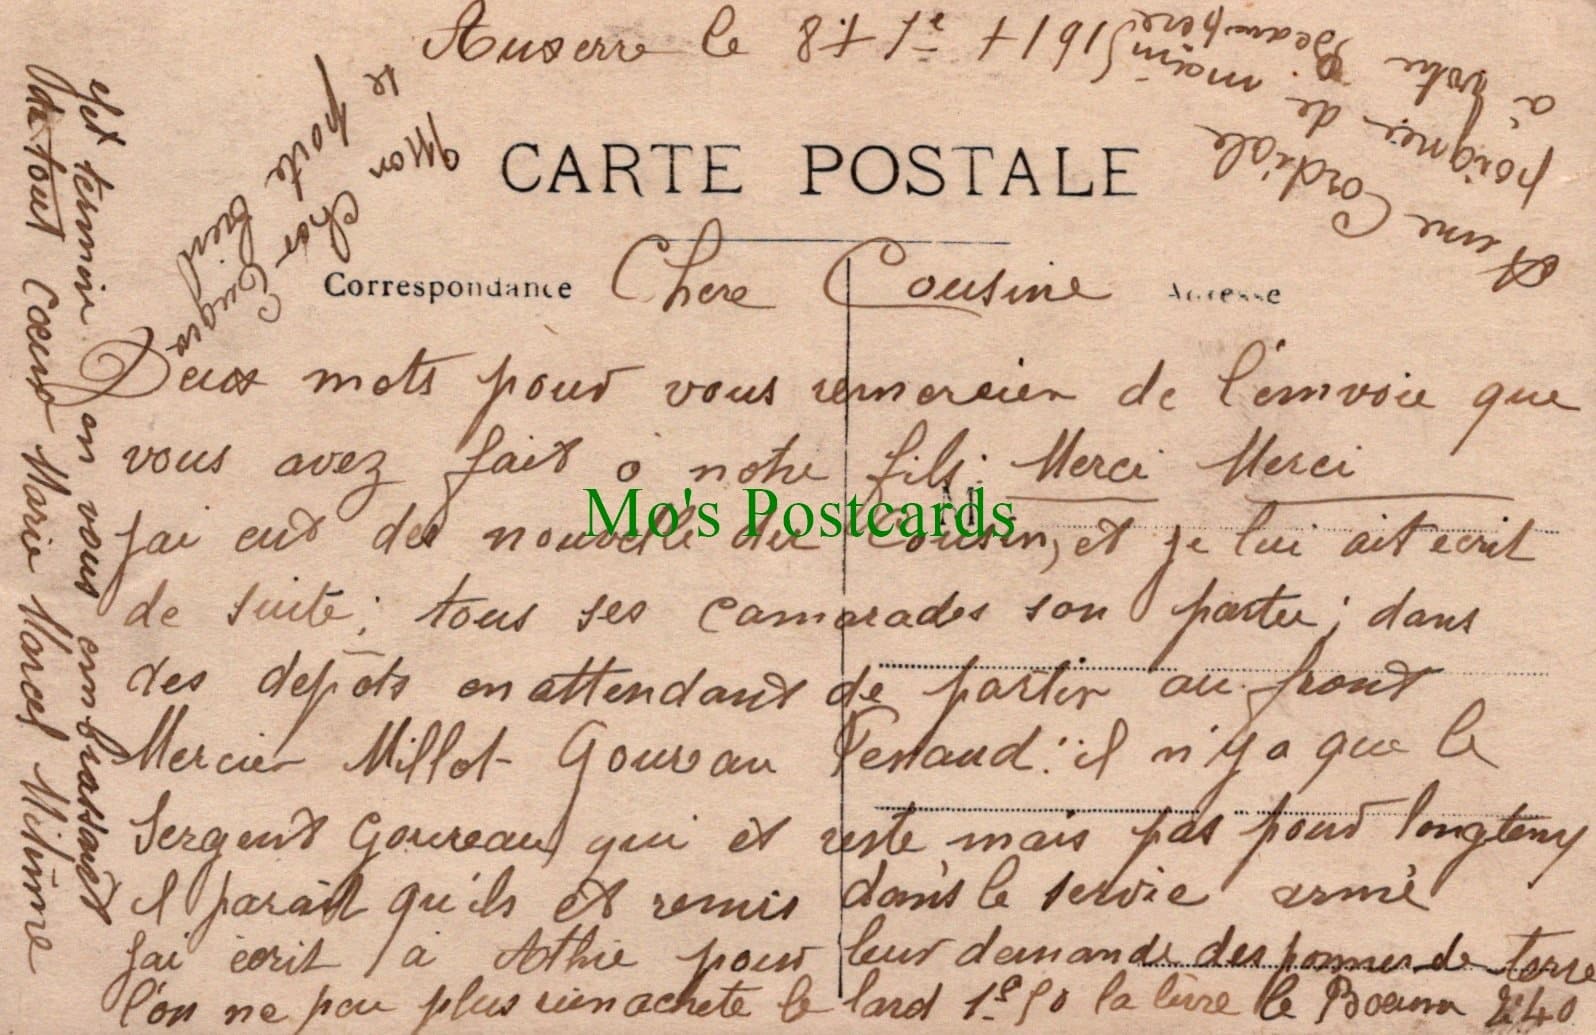 Auxerre le 8 + 1e + 1915
CARTE POSTALE
Correspondance
Adresse
Chere Cousine
Deux mots pour vous remercier de l'envoie que
vous avez fait à notre fils. Merci Merci
Mo's Postcards
M
jai eut des nouvelle du Cousin, et je lui ait ecrit
de suite; tous ses camarades son partu; dans
des depôts en attendant de partir au front
Mercier Millot Goureau il n'y a que le
Sergent Goureau qui et reste mais pas pour longtemp
il parait qu'ils et remis dans le servie armé
jai écrit à Athie pour leur demande des pommes de terre
l'on ne peu plus rien acheté le lard 1f50 la livre le 2f40
Jet termine en vous embrassant
de tout Coeur Marie Marcel
mon
Cher
le porte
bien
A une Cordiale
poigner de main
à votre Beaupère